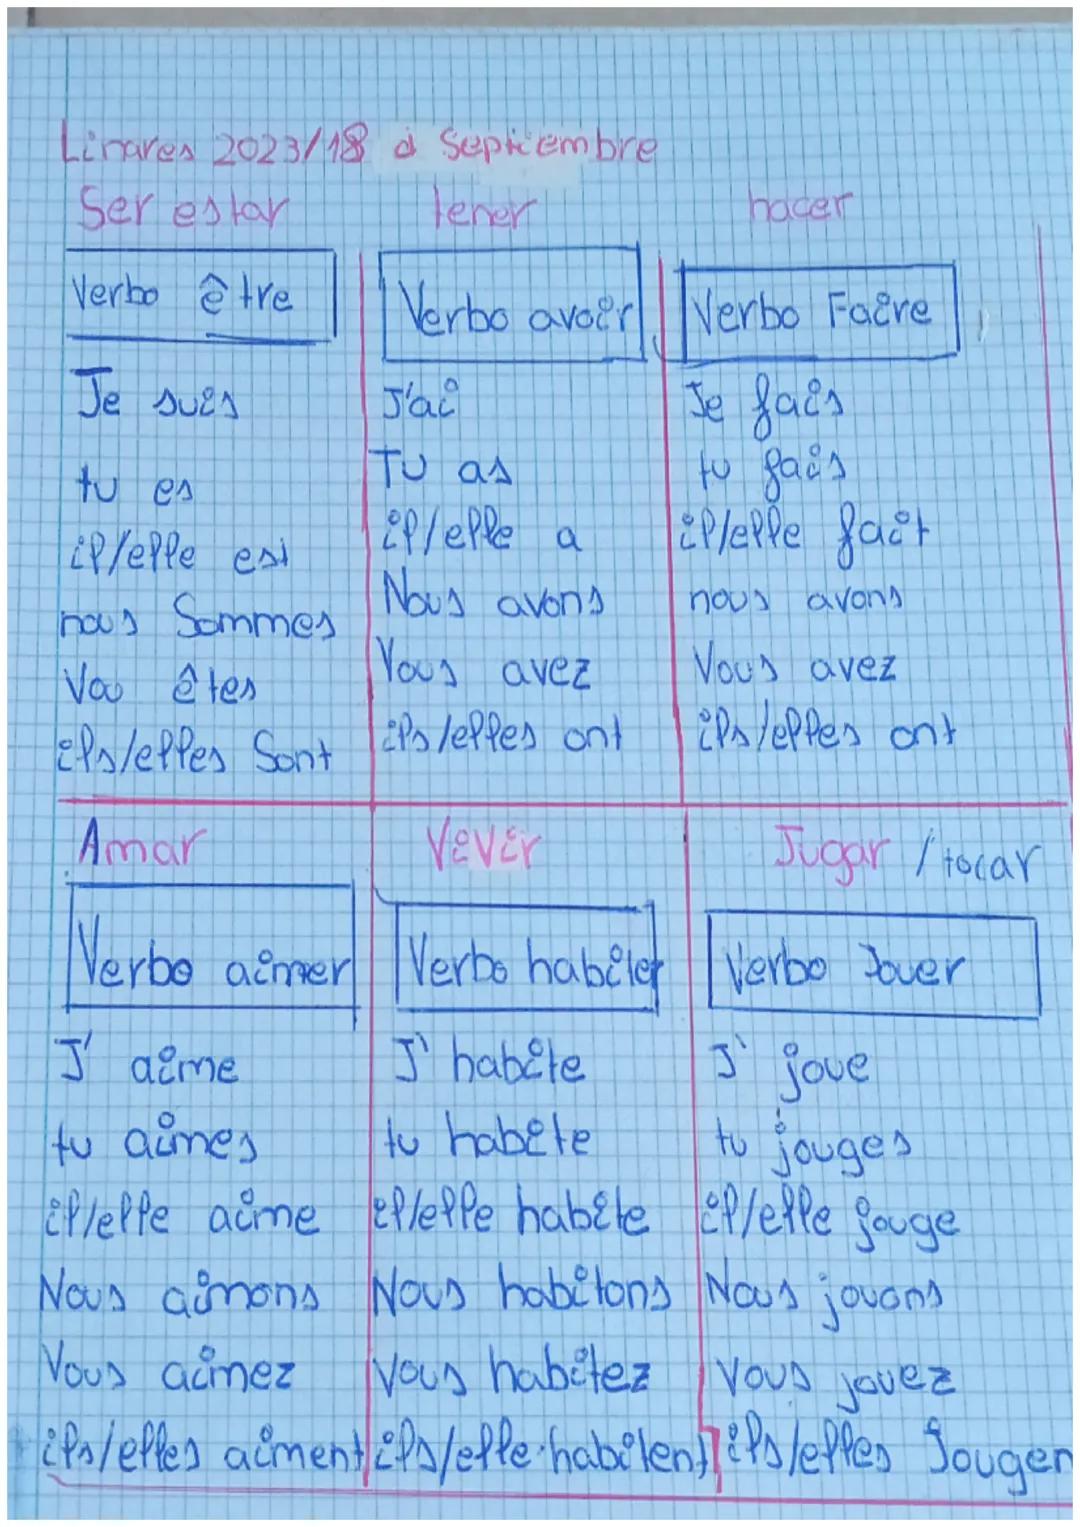 Linares 2023/18 d Septiembre
Ser estar
Verbo être
Je suis
tu es
il/elle est
nous Sommes
Vou êtes
ils/elles Sont
tener
Verbo avoir
J'ai
Tu as
il/elle a
Nous avons
Vous avez
ils/elles ont
hacer
Verbo Faire
Je fais
tu fais
il/elle fait
nous avons
Vous avez
ils/elles ont
Amar
Verbo aimer
J' aime
tu aimes
il/elle aime
Nous aimons
Vous aimez
ils/elles aiment
Vivir
Verbo habiter
J' habite
tu habite
il/elle habite
Nous habitons
Vous habitez
ils/elle habitent
Jugar / tocar
Verbo Jouer
J' joue
tu jouges
il/elle jouge
Nous jouons
Vous jouez
ils/elles Jougen